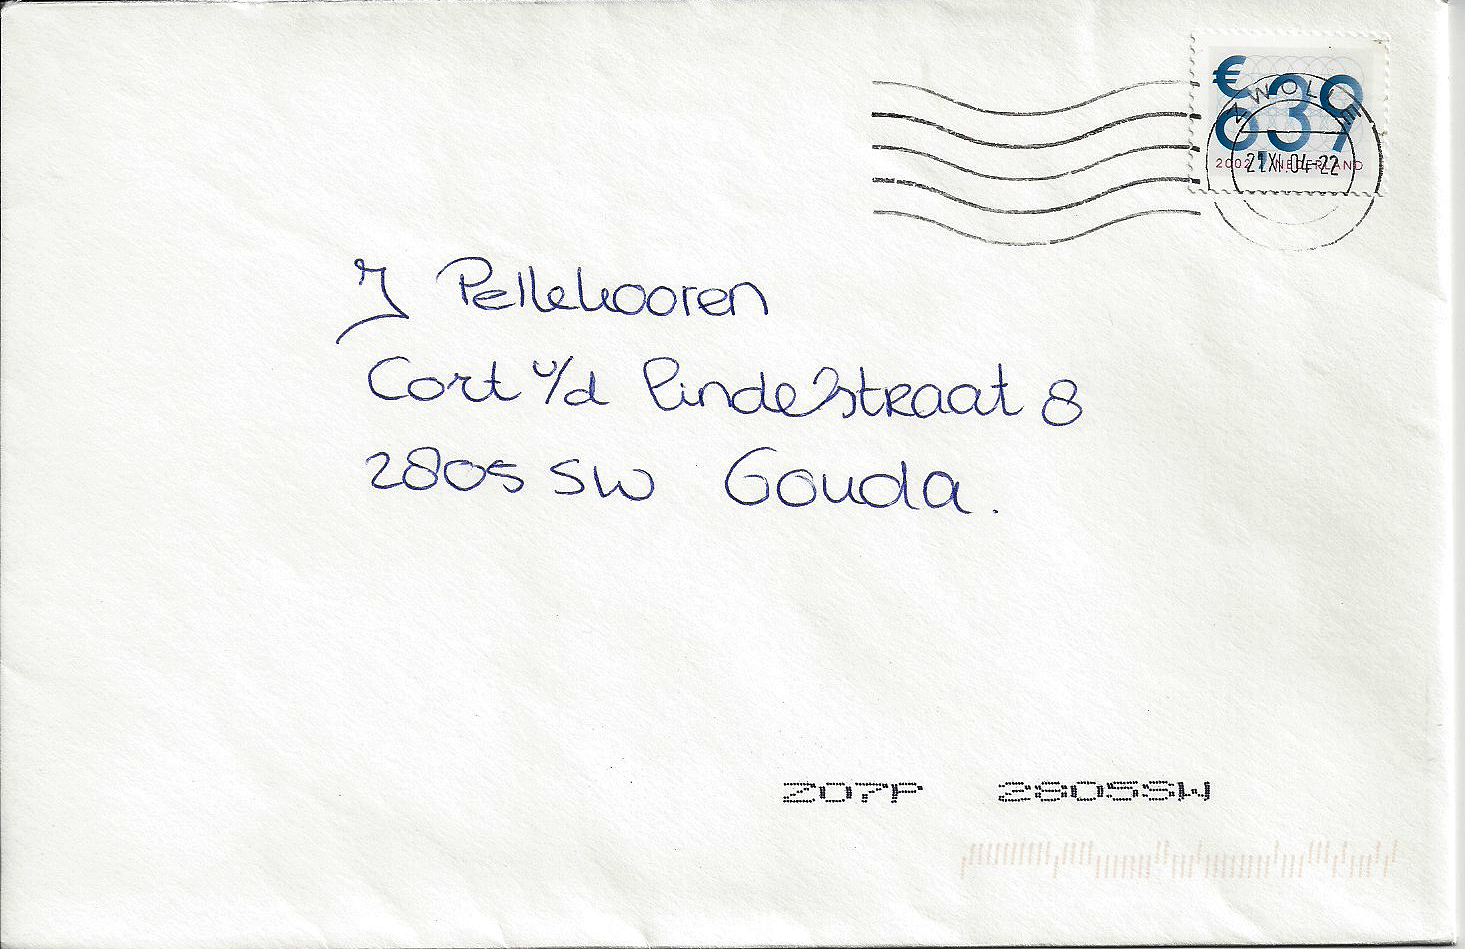 € 0,39
ZWOLLE
2002 NEDERLAND
21.XI.04-22
J Pellekooren
Cort v/d Lindestraat 8
2805 SW Gouda.
Z07P 2805SW